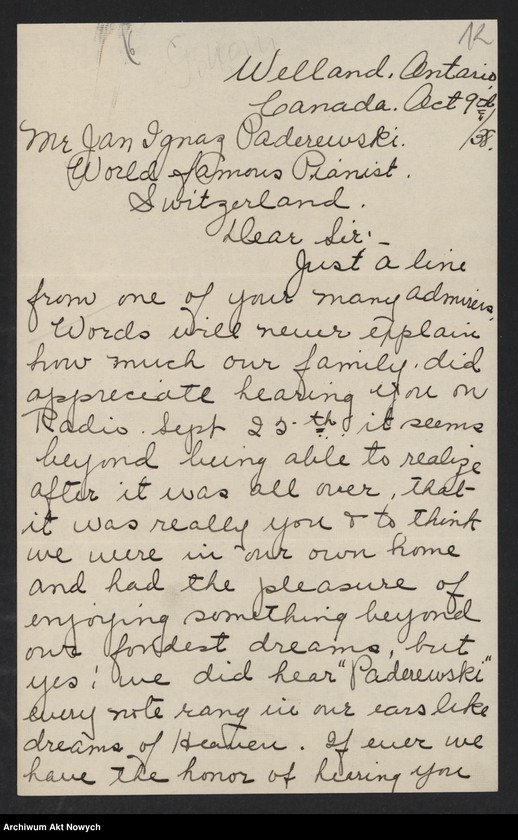 12
6
Welland, Ontario
Canada. Oct 9th
/38.
Mr Jan Ignaz Paderewski.
World famous Pianist.
Switzerland.
Dear Sir:-
Just a line
from one of your many admirers,
Words will never explain
how much our family did
appreciate hearing you on
Radio. Sept 25th it seems
beyond being able to realize
after it was all over, that
it was really you & to think
we were in our own home
and had the pleasure of
enjoying something beyond
our fondest dreams, but
yes! we did hear "Paderewski"
every note rang in our ears like
dreams of Heaven. If ever we
have the honor of hearing you
Archiwum Akt Nowych